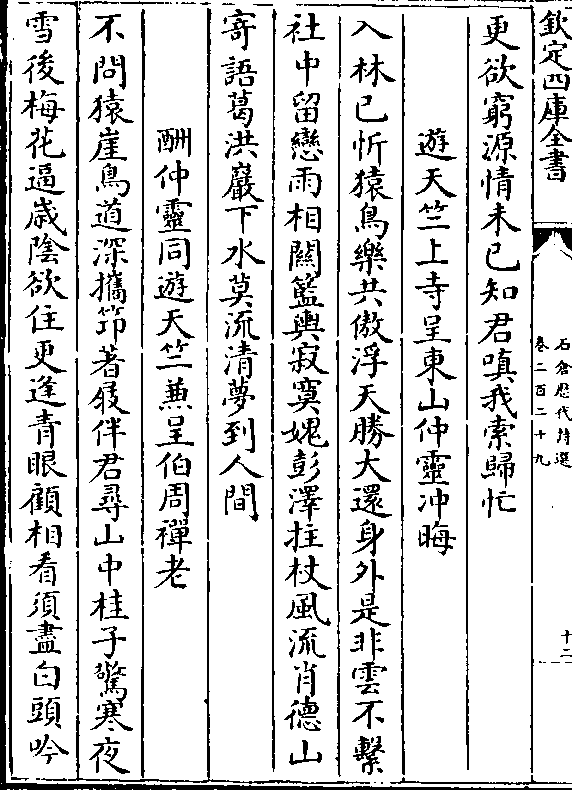 欽定四庫全書
石倉歷代詩選
卷二百二十九
十二
更欲窮源情未已知君嗔我索歸忙
遊天竺上寺呈東山仲靈冲晦
入林已忻猿鳥樂共傲浮天勝大還身外是非雲不繫
社中留戀雨相關籃輿寂寞媿彭澤拄杖風流肖德山
寄語葛洪巖下水莫流清夢到人間
酬仲靈同遊天竺兼呈伯周禪老
不問猿崖鳥道深攜筇著屐伴君尋山中桂子驚寒夜
雪後梅花逼歳陰欲住更逢青眼顧相看須盡白頭吟